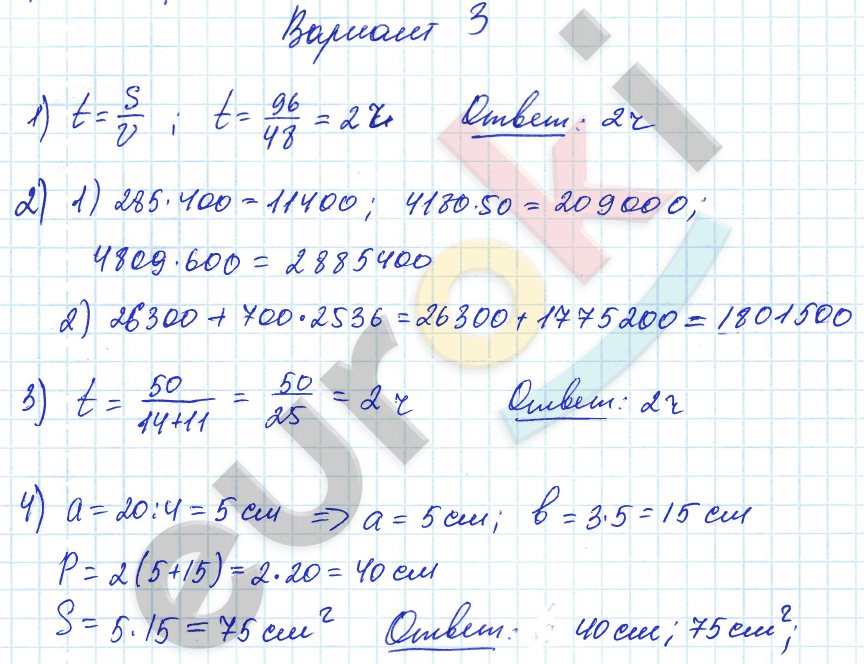 Вариант 3
1) t = S/v ; t = 96/48 = 2 ч. Ответ: 2ч
2) 1) 285·400 = 11400; 4180·50 = 209000;
4809·600 = 2885400
2) 26300 + 700·2536 = 26300 + 1775200 = 1801500
3) t = 50/(14+11) = 50/25 = 2 ч Ответ: 2ч
4) a = 20:4 = 5 см => a = 5 см; в = 3·5 = 15 см
P = 2(5+15) = 2·20 = 40 см
S = 5·15 = 75 см² Ответ: 40 см; 75 см²;
euroki